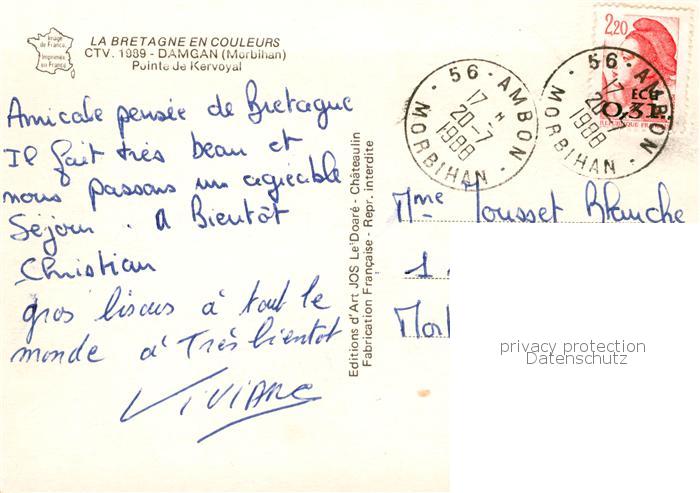 Image
de France
Imprimée
en France
LA BRETAGNE EN COULEURS
CTV. 1989 - DAMGAN (Morbihan)
Pointe de Kervoyal
Amicale pensée de Bretagne
Il fait très beau et
nous passons un agréable
Séjour. A Bientôt
Christian
gros bisous à tout le
monde à Très bientôt
VIVIANE
Editions d'Art JOS Le Doaré - Châteaulin
Fabrication Française - Repr. interdite
2,20
ECU
0,31
56 - AMBON
17 H
20-7
1988
MORBIHAN
56 - AMBON
17
20-7
1988
MORBIHAN
Mme Mousset Blanche
1
privacy protection
Datenschutz